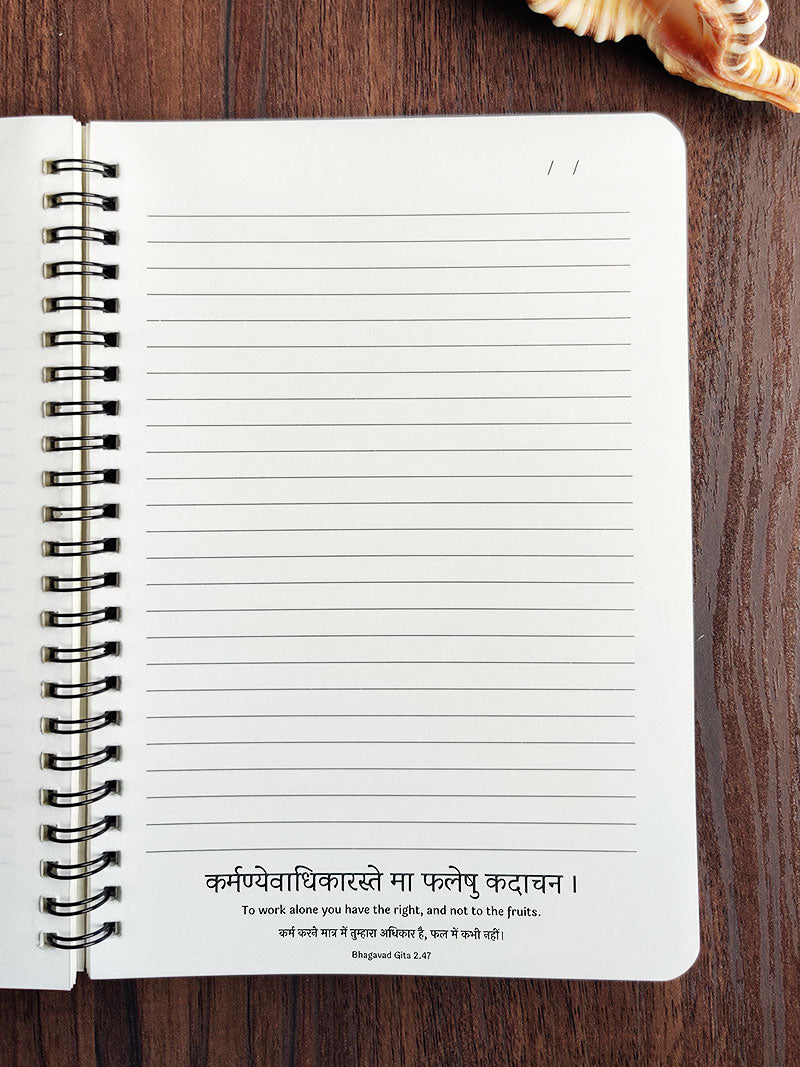 / /
कर्मण्येवाधिकारस्ते मा फलेषु कदाचन ।
To work alone you have the right, and not to the fruits.
कर्म करने मात्र में तुम्हारा अधिकार है, फल में कभी नहीं।
Bhagavad Gita 2.47